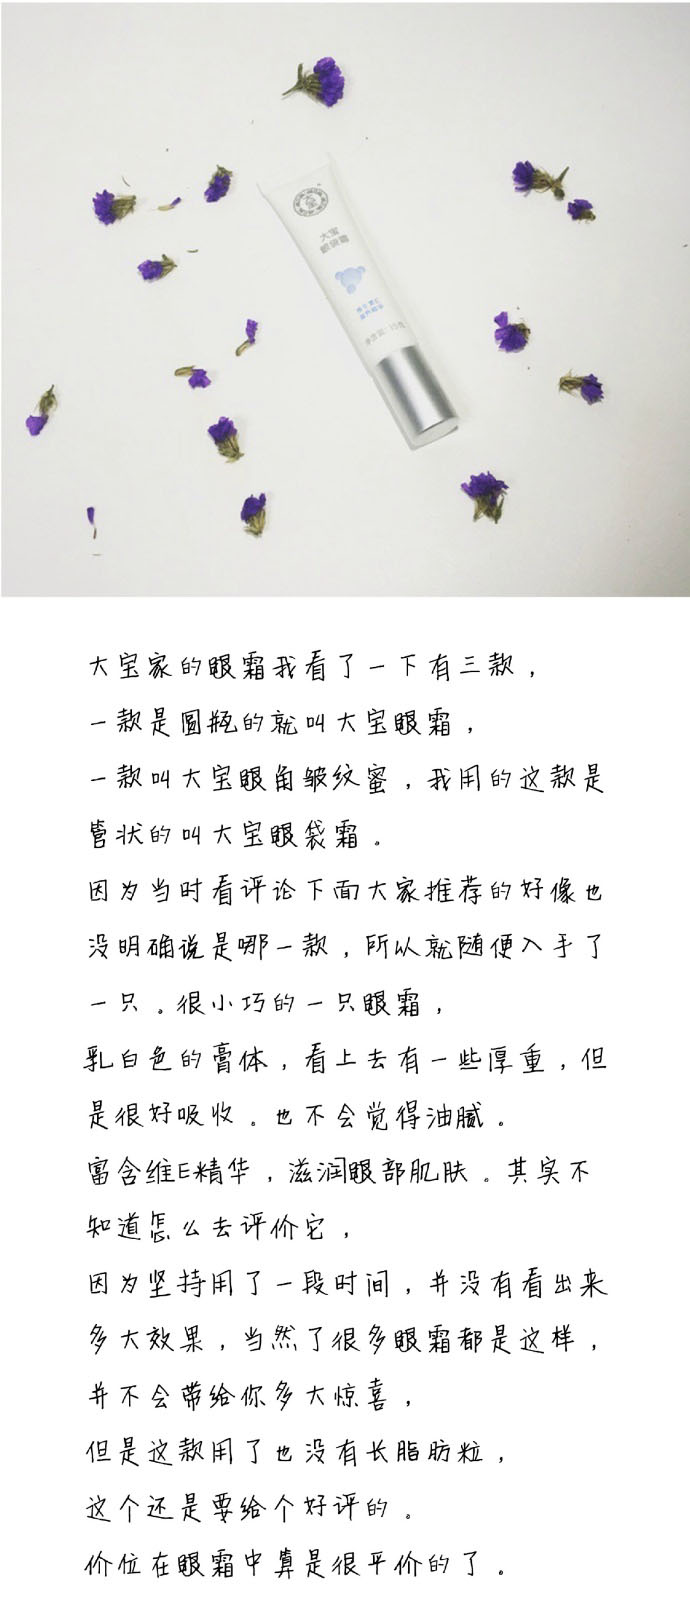 大宝
眼袋霜
净含量：15克
大宝家的眼霜我看了一下有三款，
一款是圆瓶的就叫大宝眼霜，
一款叫大宝眼角皱纹蜜，我用的这款是
管状的叫大宝眼袋霜。
因为当时看评论下面大家推荐的好像也
没明确说是哪一款，所以就随便入手了
一只。很小巧的一只眼霜，
乳白色的膏体，看上去有一些厚重，但
是很好吸收。也不会觉得油腻。
富含维E精华，滋润眼部肌肤。其实不
知道怎么去评价它，
因为坚持用了一段时间，并没有看出来
多大效果，当然了很多眼霜都是这样，
并不会带给你多大惊喜，
但是这款用了也没有长脂肪粒，
这个还是要给个好评的。
价位在眼霜中算是很平价的了。